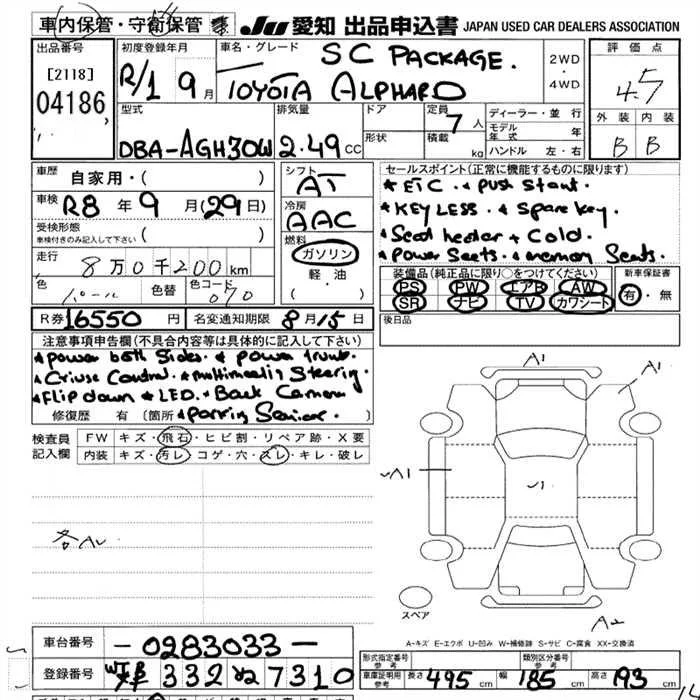 車内保管・守衛保管 JU 愛知 出品申込書 JAPAN USED CAR DEALERS ASSOCIATION
出品番号 初度登録年月 車名・グレード 評価点
[2118] SC PACKAGE. 2WD・4WD
04186 R/1 9月 TOYOTA ALPHARD 4.5
型式 排気量 ドア 定員 7人 ディーラー・並行 外装 内装
形状 積載 kg モデル年式 年 B B
DBA-AGH30W 2.49CC ハンドル 左・右
車歴 自家用・( ) シフト AT セールスポイント(正常に機能するものに限ります)
* ETC. * Push Start.
車検 R8年9月(29日) 冷房 AAC * KEYLESS. * Spare key.
受検形態 車検付きのみ記入して下さい ( ) * Seat heater + Cold.
燃料 ガソリン・軽油 * Power Seats. * memory Seats.
走行 8万0千200km 装備品(純正品に限り○をつけてください) 新車保証書
色 パール 色替 色コード 070 PS PW エアB AW 有・無
SR ナビ TV カワシート
R券 16550円 名変通知期限 8月15日 後日品
注意事項申告欄(不具合内容等は具体的に記入して下さい)
* Power both Sides. * Power trunk.
* Criuse Control. * multimedia Steering
* Flip down * LED. * Back Camera
修復歴 有(箇所 * Parking Sensior.
検査員記入欄 FW キズ・飛石・ヒビ割・リペア跡・X要
内装 キズ・汚レ・コゲ・穴・スレ・キレ・破レ
A1
A1
A1
スペア
A2
A-キズ E-エクボ U-凹み W-補修跡 S-サビ C-腐食 XX-交換済
車台番号 -0283033-
型式指定番号 参考 類別区分番号 参考
登録番号 332 7310 車庫証明用 参考 長さ 495cm 幅 185cm 高さ 193cm